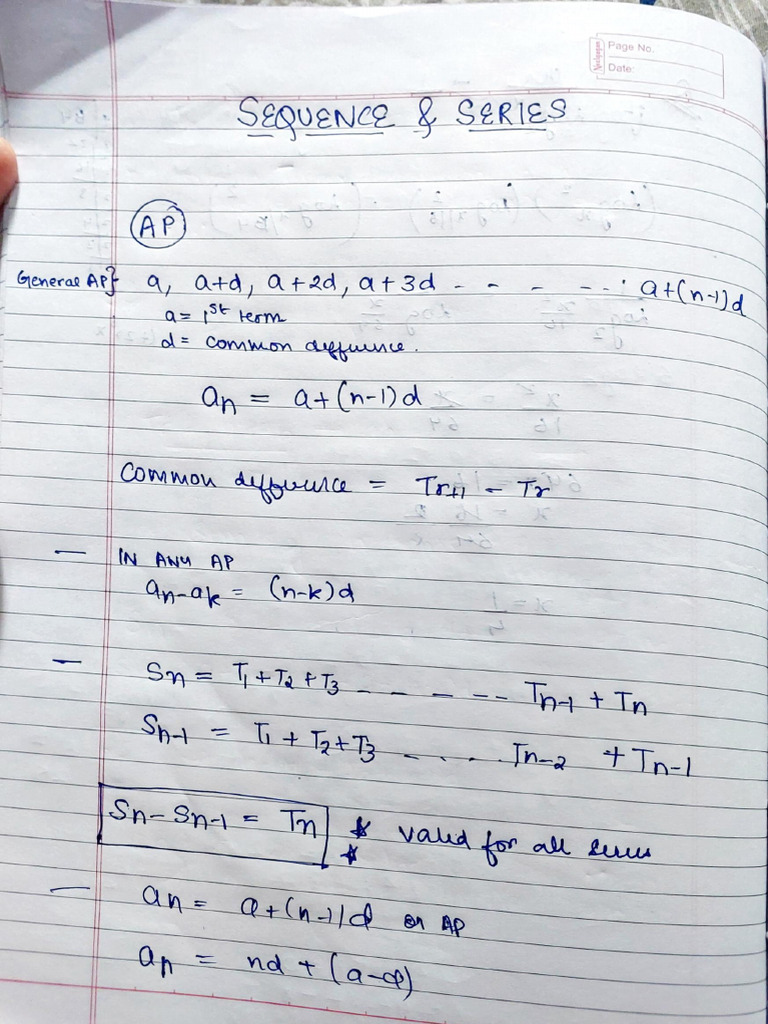 Neelgagan
Page No.
Date:
SEQUENCE & SERIES
AP
General AP} a, a+d, a+2d, a+3d - - - - - - : a+(n-1)d
a = 1st term
d = common difference.
an = a+(n-1)d
Common difference = Tr+1 - Tr
— IN ANY AP
an-ak = (n-k)d
— Sn = T1+T2+T3 - - - - - - Tn-1 + Tn
Sn-1 = T1 + T2+T3 - . . . Tn-2 + Tn-1
Sn - Sn-1 = Tn * * valid for all series
— an = a+(n-1)d AP
an = nd + (a-d)